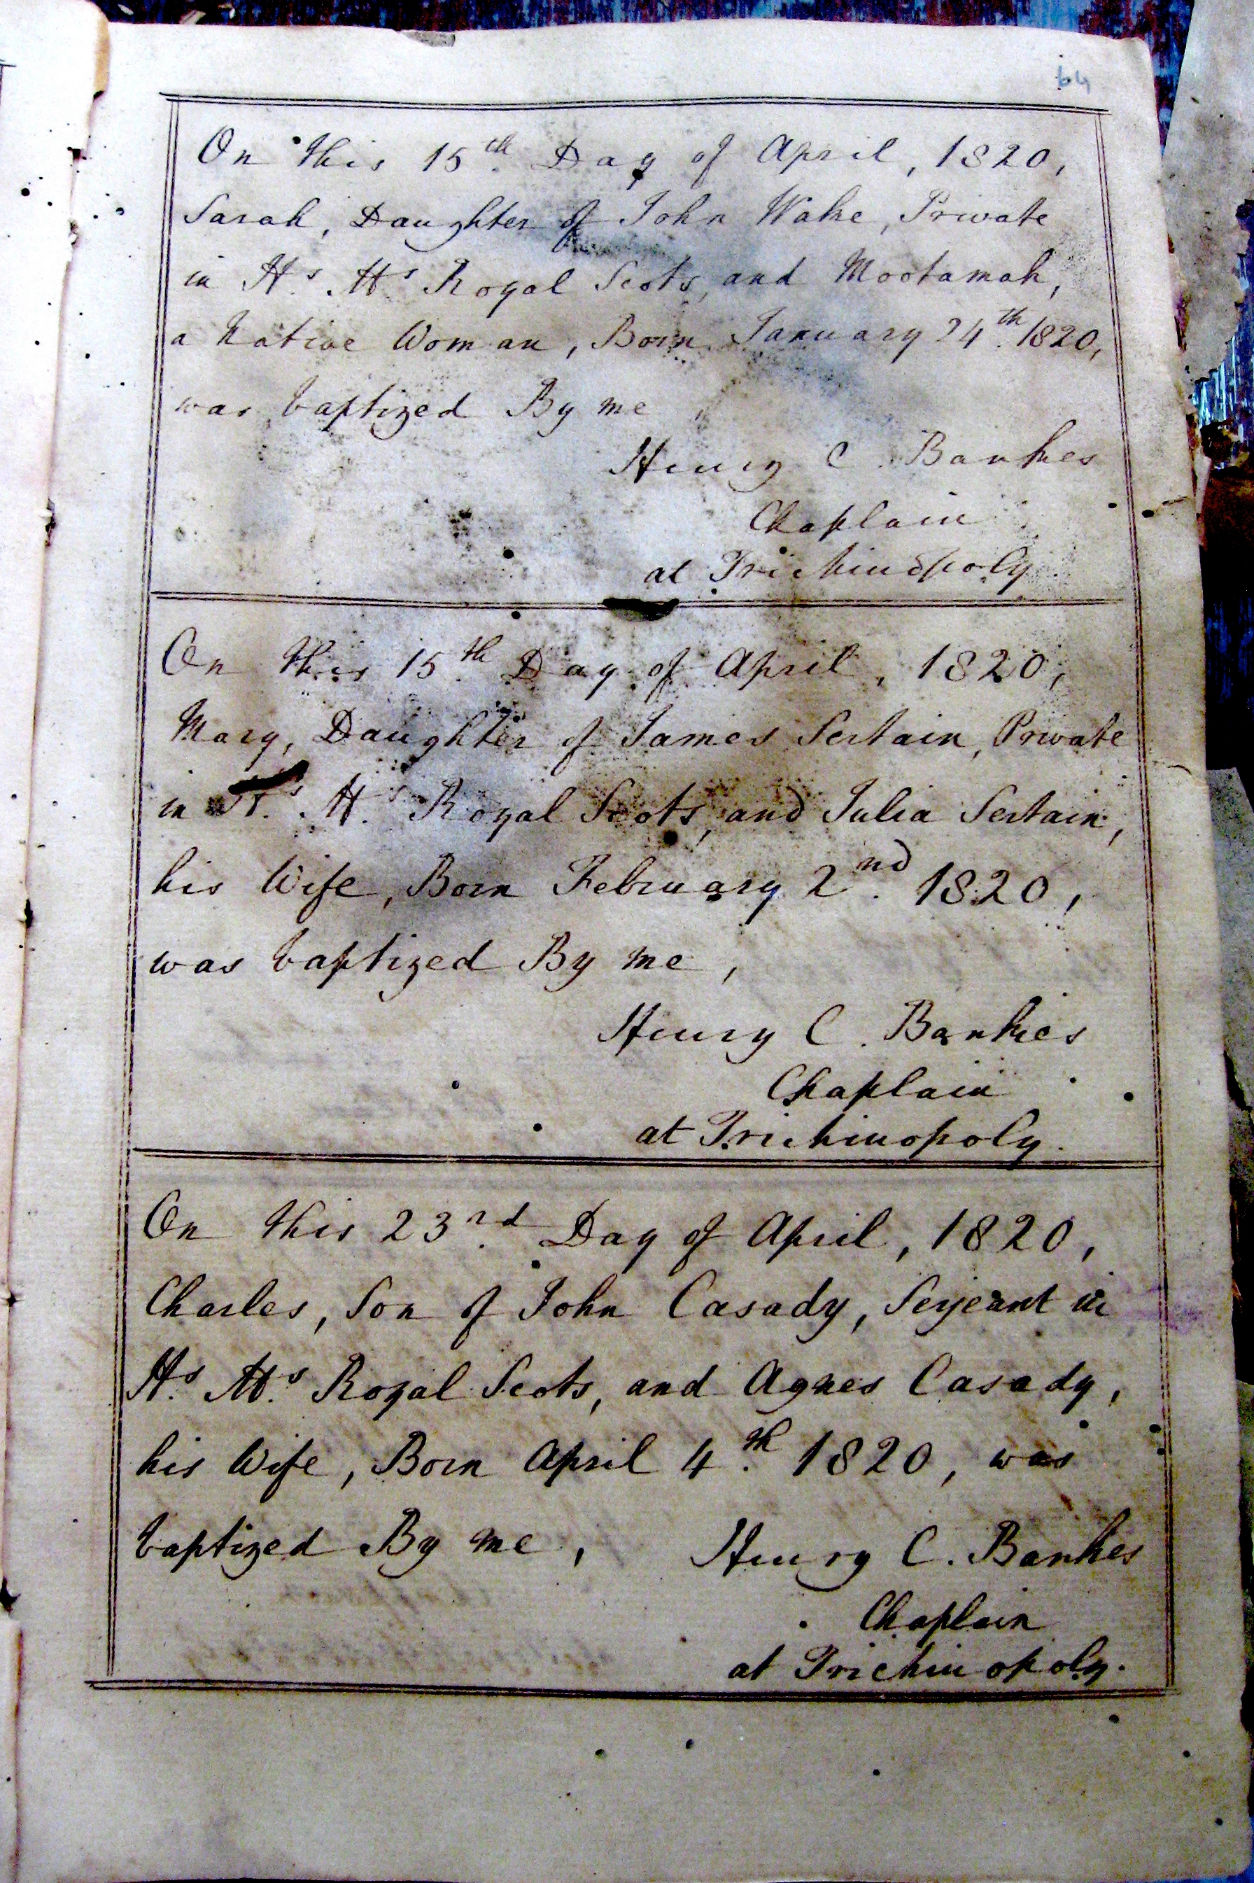 64
On this 15th Day of April, 1820,
Sarah, Daughter of John Wake, Private
in Hs. Ms Royal Scots, and Mootamah,
a Native Woman, Born January 24th. 1820,
was baptized By me,
Henry C. Bankes
Chaplain
at Trichinopoly
On this 15th. Day of April, 1820,
Mary, Daughter of James Sertain, Private
in Hs. Ms. Royal Scots, and Julia Sertain,
his Wife, Born February 2nd. 1820,
was baptized By me,
Henry C. Bankes
Chaplain
at Trichinopoly.
On this 23rd. Day of April, 1820,
Charles, Son of John Casady, Serjeant in
Hs. Ms. Royal Scots, and Agnes Casady,
his Wife, Born April 4th. 1820, was
baptized By me, Henry C. Bankes
Chaplain
at Trichinopoly.